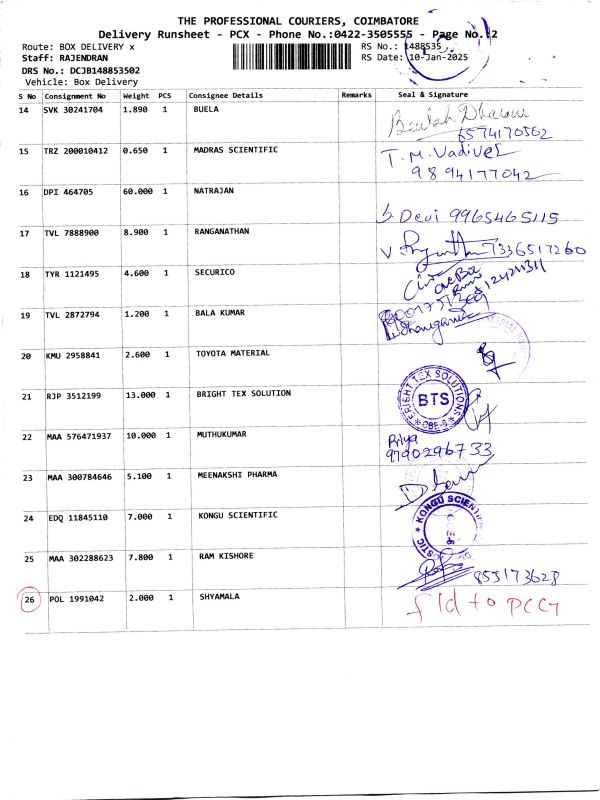 THE PROFESSIONAL COURIERS, COIMBATORE
Delivery Runsheet - PCX - Phone No.:0422-3505555 - Page No.:2
Route: BOX DELIVERY x
RS No.: 1488535
Staff: RAJENDRAN
RS Date: 10-Jan-2025
DRS No.: DCJB148853502
Vehicle: Box Delivery
S No Consignment No Weight PCS Consignee Details Remarks Seal & Signature
14 SVK 30241704 1.890 1 BUELA
Beulah Dharani
6574170562
15 TRZ 200010412 0.650 1 MADRAS SCIENTIFIC T.M. Vadivel
9894177042
16 DPI 464705 60.000 1 NATRAJAN
S Devi 9965465115
17 TVL 7888900 8.900 1 RANGANATHAN
7336517260
18 TYR 1121495 4.600 1 SECURICO
19 TVL 2872794 1.200 1 BALA KUMAR
20 KMU 2958841 2.600 1 TOYOTA MATERIAL
21 RJP 3512199 13.000 1 BRIGHT TEX SOLUTION
BRIGHT TEX SOLUTIONS
BTS
CBE-6
22 MAA 576471937 10.000 1 MUTHUKUMAR Priya
9790296733
23 MAA 300784646 5.100 1 MEENAKSHI PHARMA
24 EDQ 11845110 7.000 1 KONGU SCIENTIFIC
KONGU SCIENTI
25 MAA 302288623 7.800 1 RAM KISHORE
855173628
26 POL 1991042 2.000 1 SHYAMALA
fld to PCG